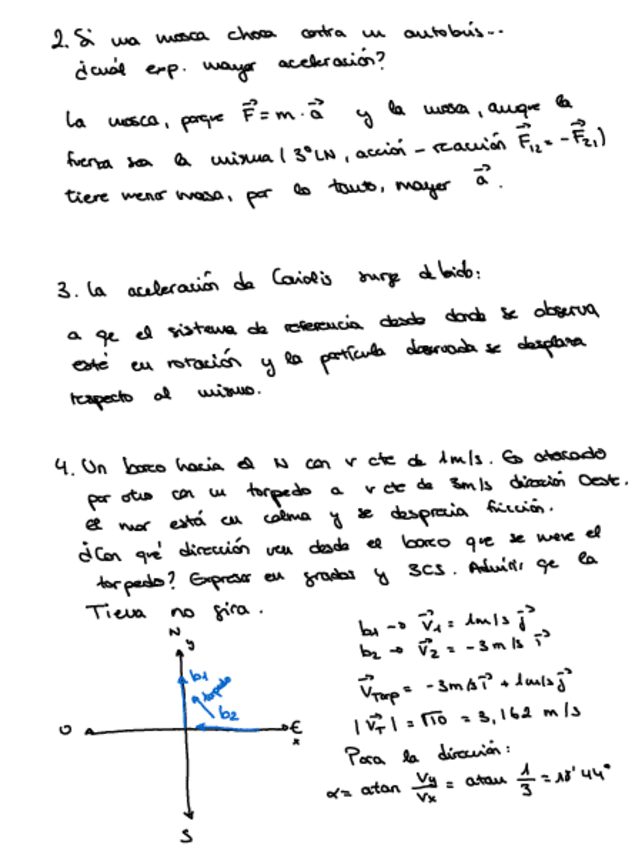 2. Si una mosca choca contra un autobús...
¿cuál exp. mayor aceleración?
La mosca, porque F = m · a y la mosca, aunque la
fuerza sea la misma (3ª LN, acción - reacción F12 = -F21)
tiene menor masa, por lo tanto, mayor a.
3. La aceleración de Coriolis surge debido:
a qe el sistema de referencia desde donde se observa
esté en rotación y la partícula observada se desplaza
respecto al mismo.
4. Un barco hacia el N con v cte de 1m/s. Es atacado
por otro con un torpedo a v cte de 3m/s dirección Oeste.
el mar está en calma y se desprecia fricción.
¿Con qué dirección ven desde el barco que se mueve el
torpedo? Expresar en grados y 3CS. Admitir qe la
Tierra no gira.
N
y
b1
torpedo
b2
O
E
x
S
b1 → V1 = 1m/s j
b2 → V2 = -3 m/s i
VTorp = -3m/s i + 1m/s j
|VT| = √10 = 3,162 m/s
Para la dirección:
α = atan Vy/Vx = atan 1/3 = 18'44°